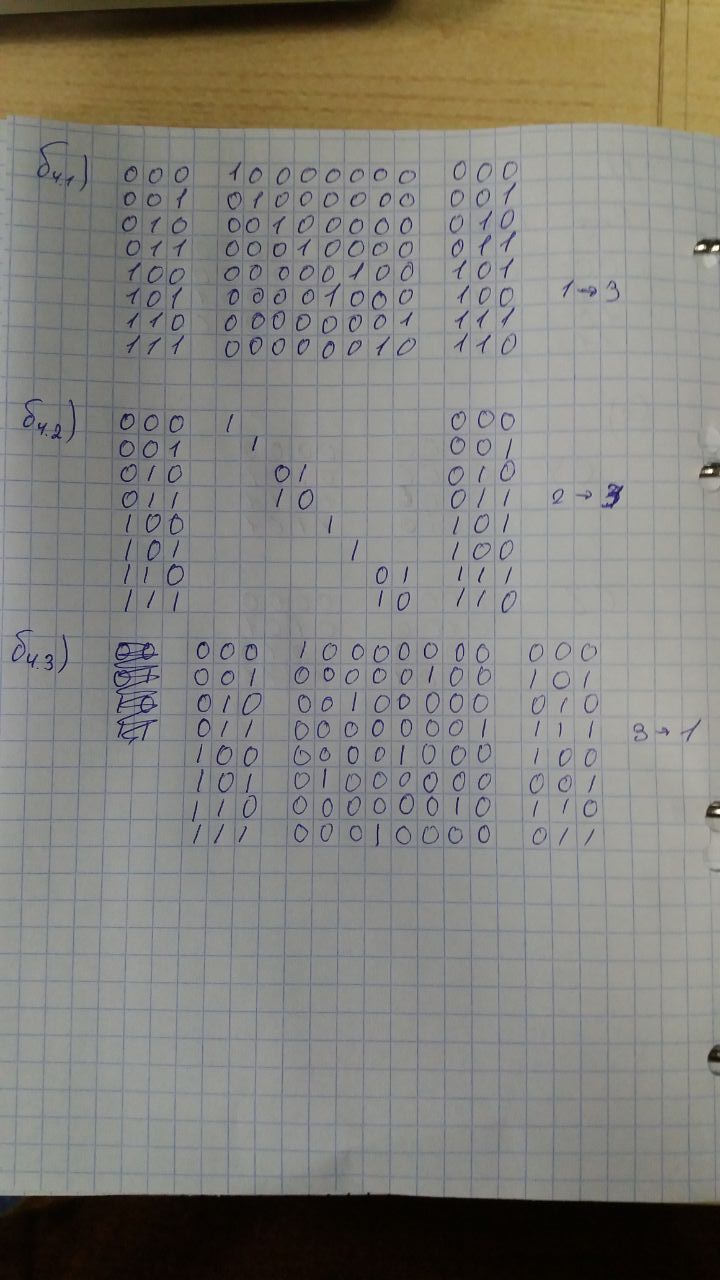 б4.1) 000 10000000 000
001 01000000 001
010 00100000 010
011 00010000 011
100 00000100 101
101 00001000 100 1→3
110 00000001 111
111 00000010 110
б4.2) 000 1 000
001 1 001
010 01 010
011 10 011 2→3
100 1 101
101 1 100
110 01 111
111 10 110
б4.3) 000 10000000 000
001 00000100 101
010 00100000 010
011 00000001 111 3→1
100 00001000 100
101 01000000 001
110 00000010 110
111 00010000 011